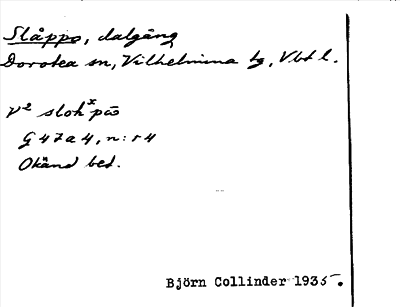 Slåppo, dalgång
Dorotea sn, Vilhelmina tg, Vbtl.
V² slohˣpō
G 47a4, n:r 4
Okänd bet.
Björn Collinder 1935.